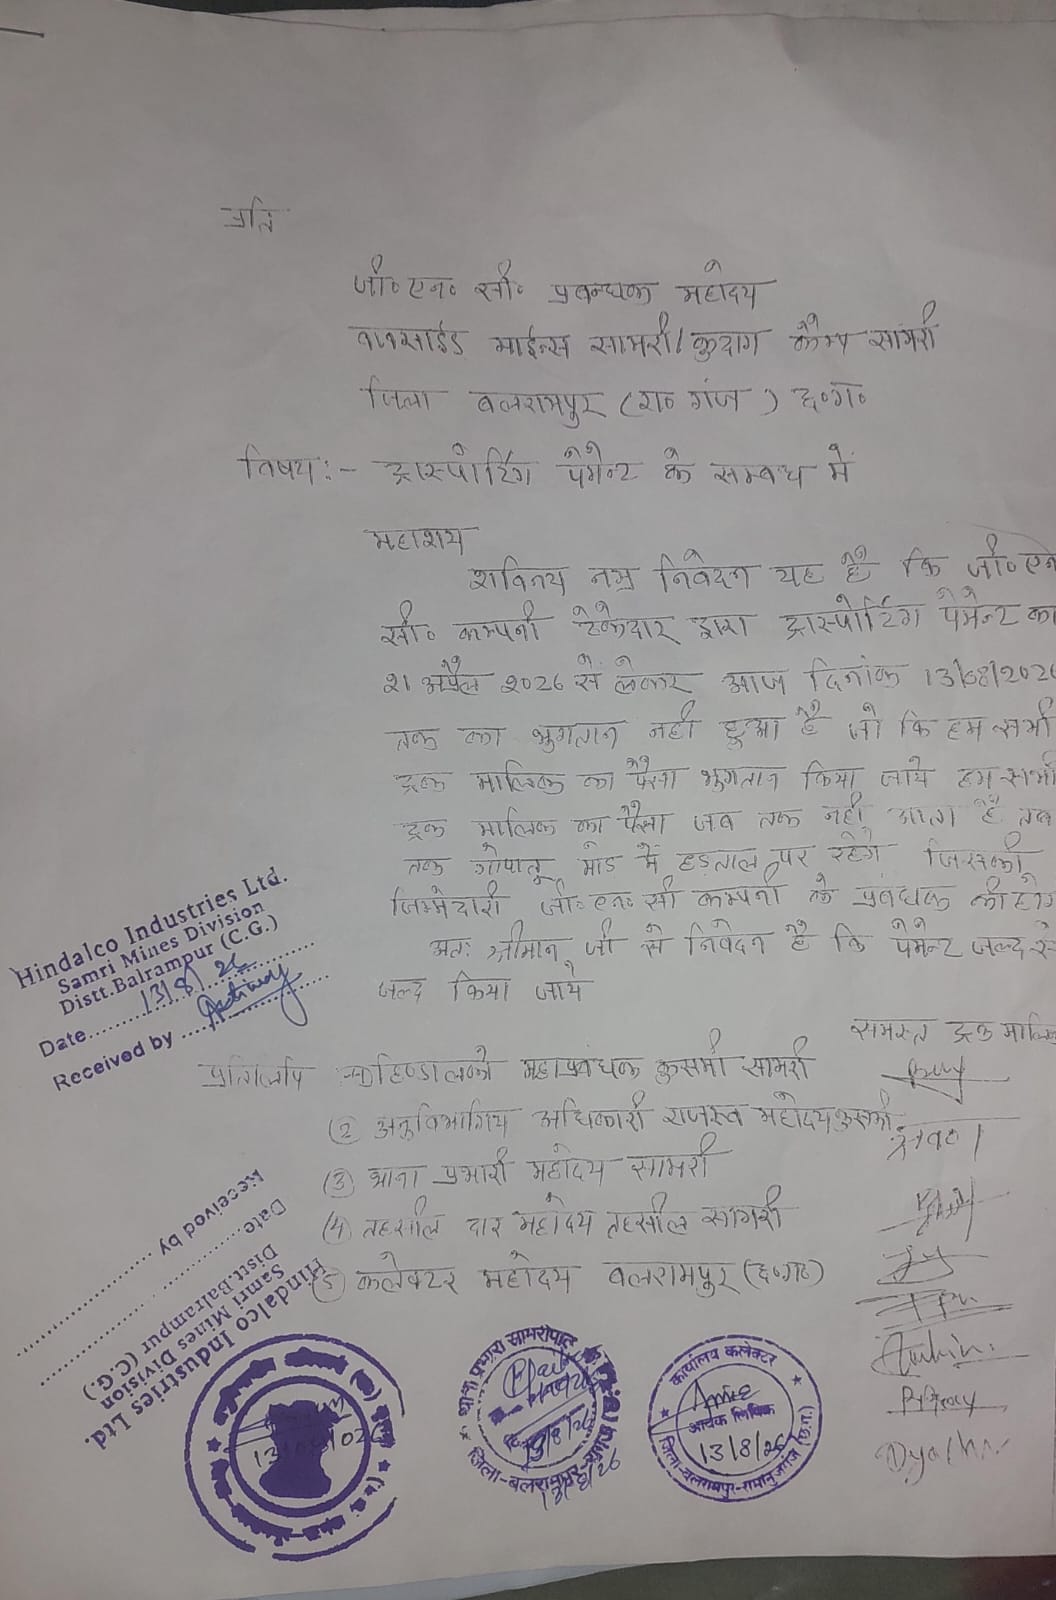 प्रति
जी॰ एन॰ सी॰ प्रबन्धक महोदय
बाक्साईड माईन्स सामरी/कुदाग कैम्प सामरी
जिला बलरामपुर (रा॰ गंज) छ॰ग॰
विषय:- ट्रास्पोर्टिंग पेमेन्ट के सम्बध में
महाशय
शविनय नम्र निवेदन यह है कि जी॰ एन
सी॰ कम्पनी ठेकेदार द्वारा ट्रास्पोर्टिंग पेमेन्ट का
21 अप्रैल 2026 से लेकर आज दिनांक 13/08/2026
तक का भुगतान नही हुआ है जो कि हम सभी
ट्रक मालिक का पैसा भुगतान किया जाये हम सभी
ट्रक मालिक का पैसा जब तक नही आता है तब
तक गोपातु मोड में हडताल पर रहेगे जिसकी
जिम्मेदारी जी॰ एन॰ सी कम्पनी के प्रबंधक की होग
अतः श्रीमान जी से निवेदन है कि पेमेन्ट जल्द से
जल्द किया जाये
समस्त ट्रक मालिक
प्रतिलिपि हिण्डालको महाप्रबंधक कुसमी सामरी
(2) अनुविभागिय अधिकारी राजस्व महोदय कुसमी
(3) थाना प्रभारी महोदय सामरी
(4) तहसील दार महोदय तहसील सामरी
(5) कलेक्टर महोदय बलरामपुर (छ॰ग॰)
Hindalco Industries Ltd.
Samri Mines Division
Distt.Balrampur (C.G.)
Date 13/8/26
Received by
Hindalco Industries Ltd.
Samri Mines Division
Distt.Balrampur (C.G.)
Date
Received by
थाना प्रभारी सामरीपाट
जिला-बलरामपुर
13/8/26
कार्यालय कलेक्टर
आवक लिपिक
13/8/26
जिला-बलरामपुर-रामानुजगंज (छ.ग.)